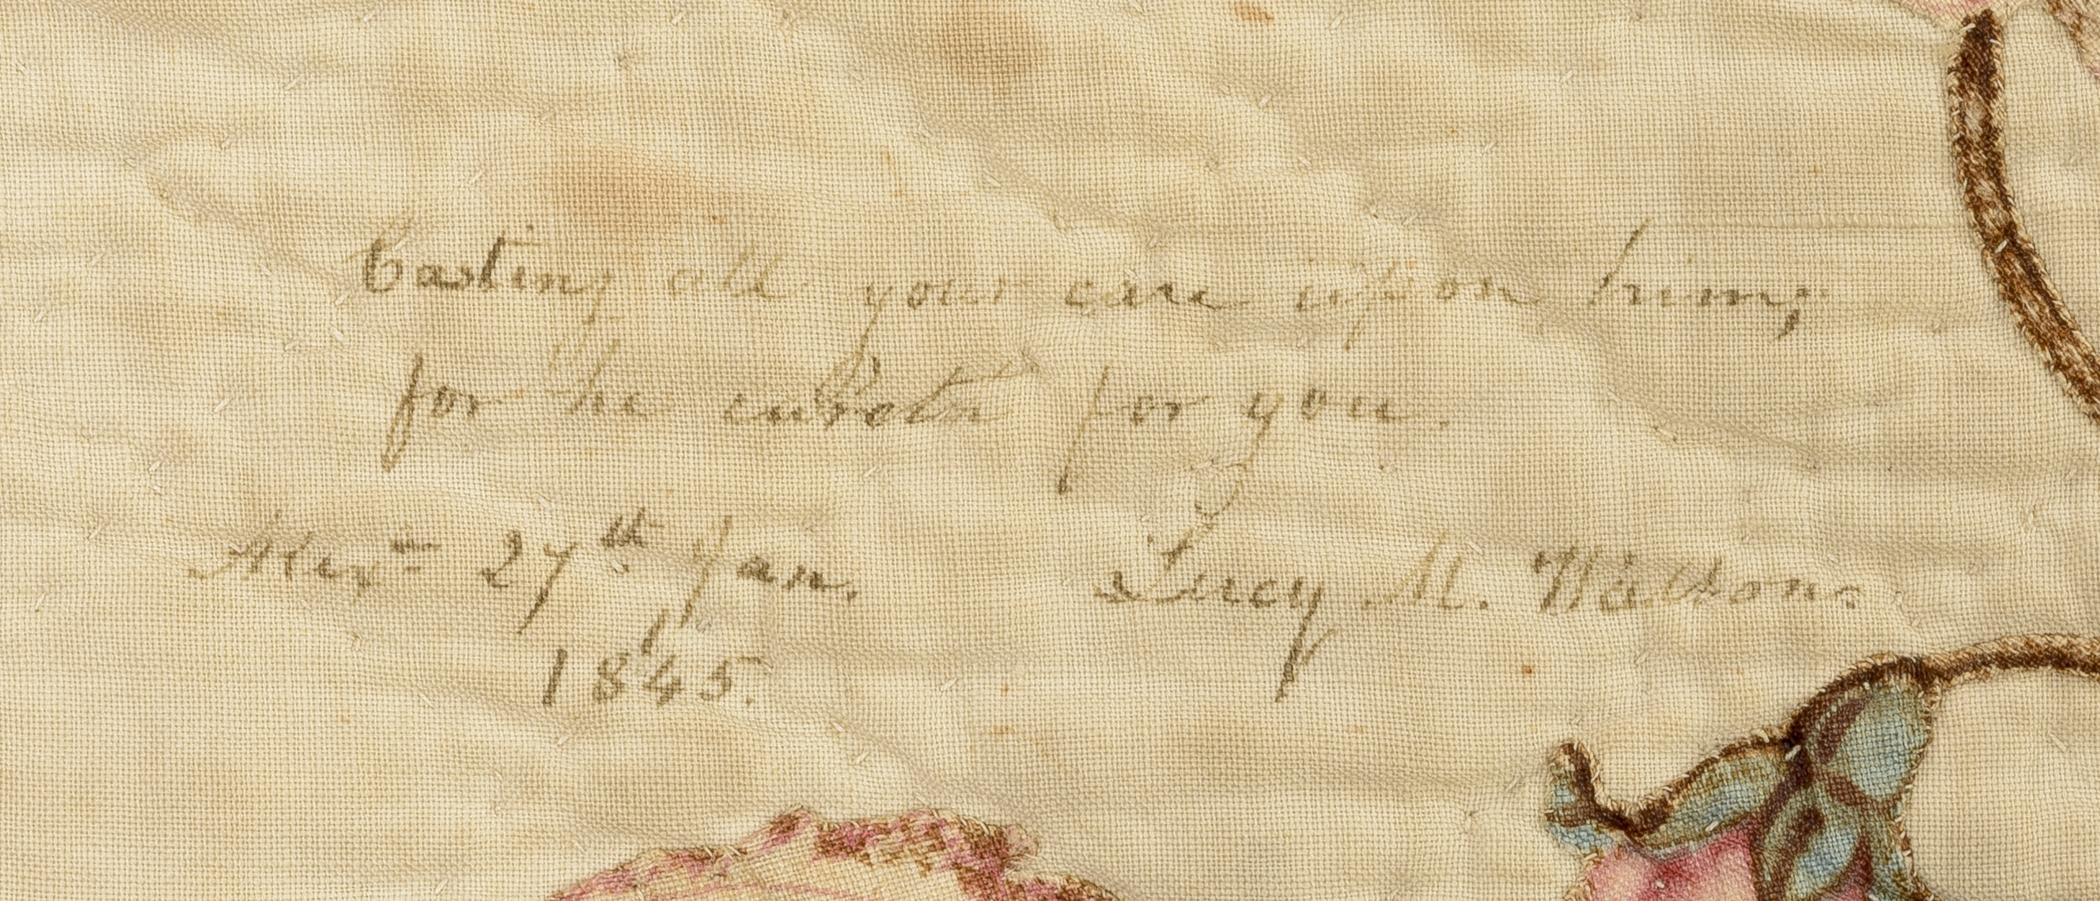 Casting all your care upon him;
for he careth for you.
Alexa 27th Jan. Lucy M.
1845.